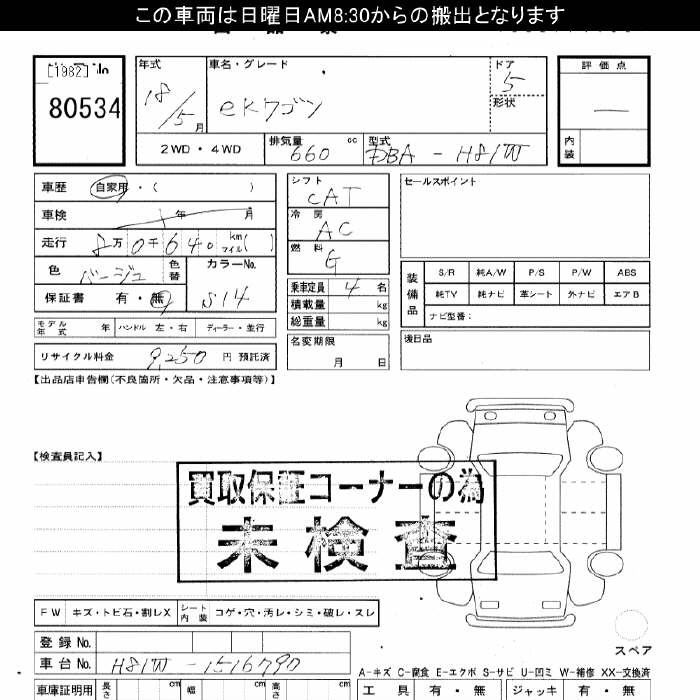 この車両は日曜日AM8:30からの搬出となります
[1982] No
80534
年式 18/5月
車名・グレード eKワゴン
ドア 5
形状
評価点 —
内装
2WD・4WD
排気量 660 cc
型式 DBA-H81W
車歴 自家用・( )
車検 年 月
走行 8万0千640 km マイル( )
色 ベージュ 色替
カラーNo. S14
保証書 有・無
シフト CAT
冷房 AC
燃料 G
乗車定員 4名
積載量 kg
総重量 kg
セールスポイント
装備品 S/R 純A/W P/S P/W ABS
純TV 純ナビ 革シート 外ナビ エアB
ナビ型番:
モデル年式 年 ハンドル 左・右 ディーラー・並行
名変期限 月 日
後日品
リサイクル料金 9,250 円 預託済
【出品店申告欄(不良箇所・欠品・注意事項等)】
【検査員記入】
買取保証コーナーの為
未検査
FW キズ・トビ石・割レX シート内装 コゲ・穴・汚レ・シミ・破レ・スレ
スペア
登録No.
車台No. H81W-1516790
A-キズ C-腐食 E-エクボ S-サビ U-凹ミ W-補修 XX-交換済
車庫証明用 長さ cm 幅 cm 高さ cm
工具 有・無 ジャッキ 有・無